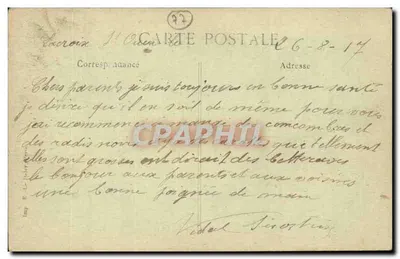 77
CARTE POSTALE
Lacroix St Ouen le 26-8-17
Correspondance Adresse
Chers parents je suis toujours en bonne santé
je désire qu'il en soit de même pour vous
j'ai recommencé manger des concombres et
des radis noirs que tellement
elles sont grosses ont dirait des betteraves
le bonjour aux parents et aux voisines
une bonne poignée de main
Vidal
CPARAMA